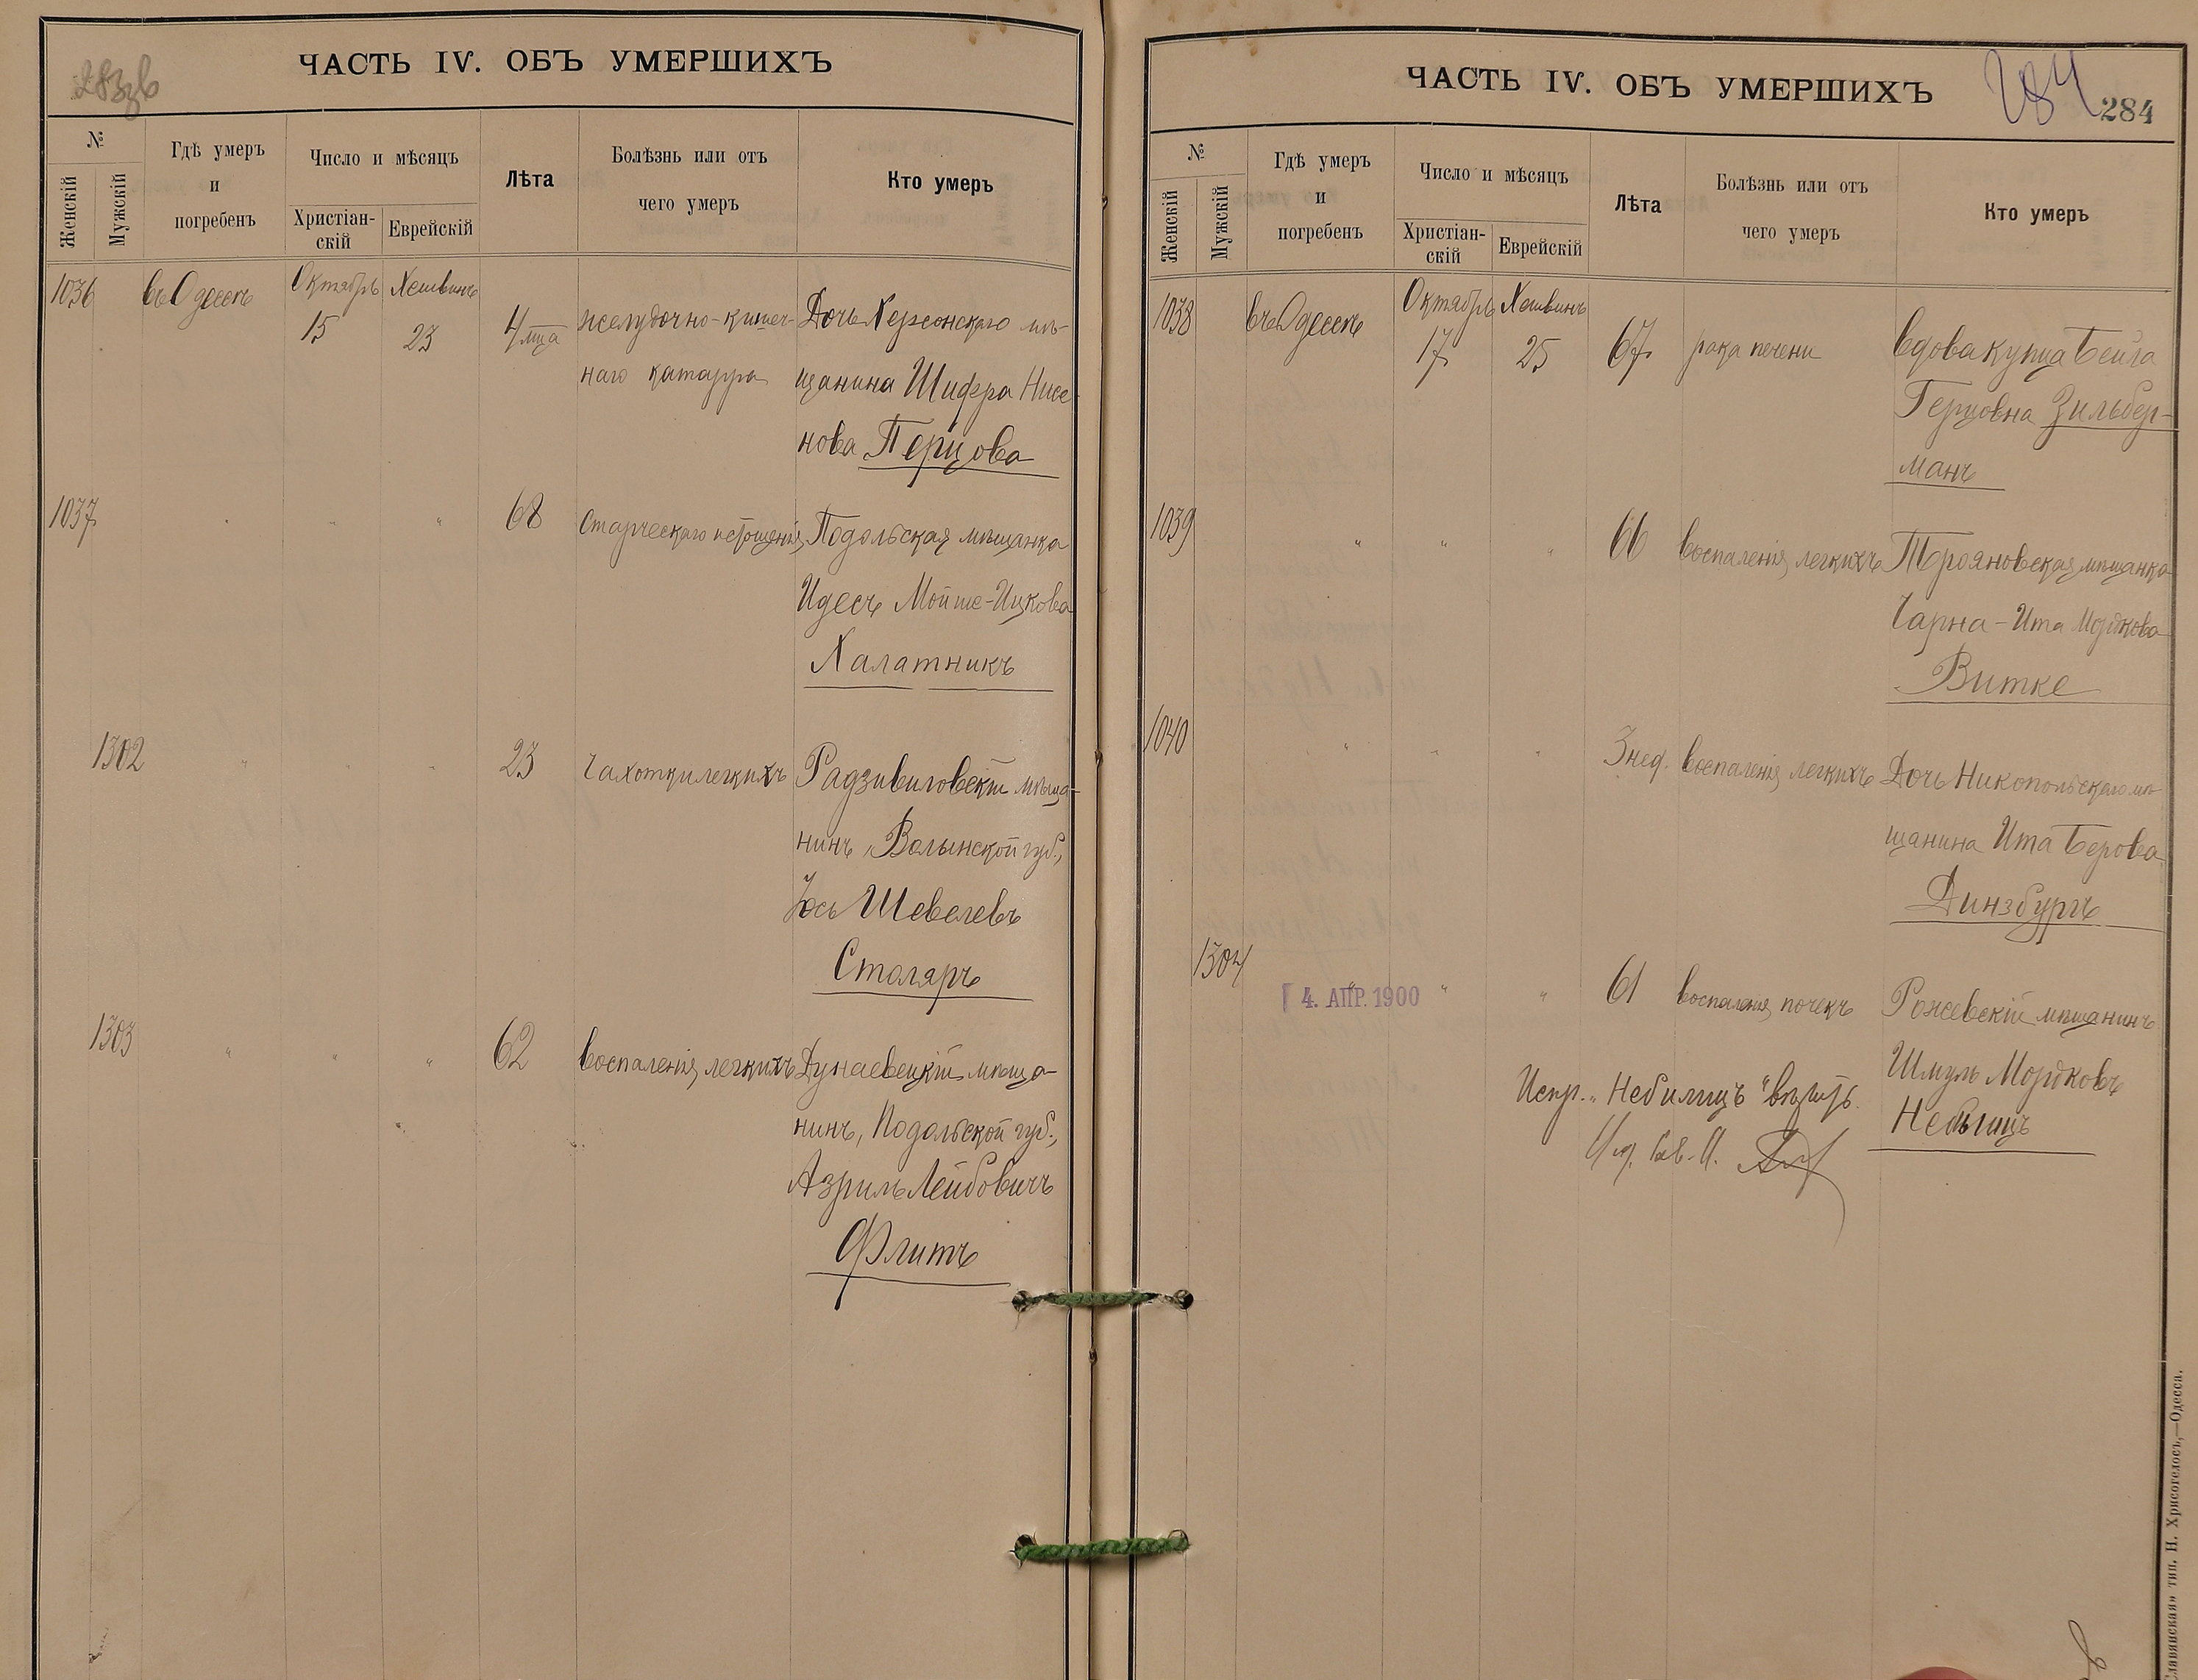 283об
ЧАСТЬ IV. ОБЪ УМЕРШИХЪ
№
Женскій
Мужскій
Гдѣ умеръ
и
погребенъ
Число и мѣсяцъ
Христіан-
скій
Еврейскій
Лѣта
Болѣзнь или отъ
чего умеръ
Кто умеръ
1036 въ Одессѣ Октябрь Хешвинъ
15 23 4 мца желудочно-кишеч- Дочь Херсонскаго мѣ-
наго катарра щанина Шифра Нисе-
нова Перцова
1037 " " " 68 Старческаго истощенія Подольская мѣщанка
Идесъ Мойше-Ицкова
Халатникъ
1302 " " " 23 Чахотки легкихъ Радзивиловскій мѣща-
нинъ, Волынской губ.,
Іось Шевелевъ
Столяръ
1303 " " " 62 Воспаленія легкихъ Дунаевецкій мѣща-
нинъ, Подольской губ.,
Азриль Лейбовичъ
Флитъ
ЧАСТЬ IV. ОБЪ УМЕРШИХЪ
284
284
№
Женскій
Мужскій
Гдѣ умеръ
и
погребенъ
Число и мѣсяцъ
Христіан-
скій
Еврейскій
Лѣта
Болѣзнь или отъ
чего умеръ
Кто умеръ
1038 въ Одессѣ Октябрь Хешвинъ
17 25 67 рака печени Вдова купца Бейла
Герцовна Зильбер-
манъ
1039 " " " 66 Воспаленія легкихъ Трояновская мѣщанка
Чарна-Ита Мордкова
Витке
1040 " " " 3 нед. Воспаленія легкихъ Дочь Никопольскаго мѣ-
щанина Ита Берова
Динзбургъ
1304 " " " 61 Воспаленія почекъ Рожевскій мѣщанинъ
4. АПР. 1900
Шмуль Мордковъ
Небылицъ
Испр. „Небилицъ" вѣрить.
И. д.
Славянская» тип. Н. Хрисогелосъ,—Одесса.